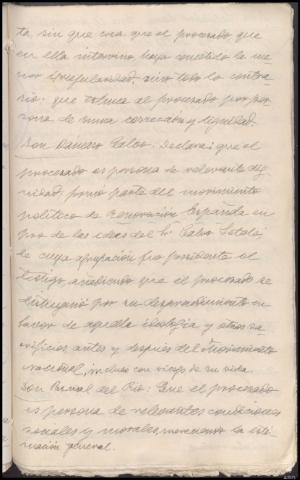 ta, sin que crea que el procesado que
en ella intervino, haya cometido la me-
nor irregularidad, sino todo lo contra-
rio: que estima al procesado por per-
sona de suma corrección y legalidad.
Don Dámaso Calvo. Declara: que el
procesado es persona de relevante dig-
nidad, formó parte del movimiento
político de Renovación Española en
pro de las ideas del Sr. Calvo Sotelo,
de cuya agrupación fue presidente el
testigo, añadiendo que el procesado se
distinguió por su desprendimiento en
favor de aquella ideología y otros sa-
crificios antes y después del Movimiento
nacional, incluso con riesgo de su vida.
Don Bernal del Río: Que el procesado
es persona de relevantes condiciones
sociales y morales, mereciendo la esti-
mación general.